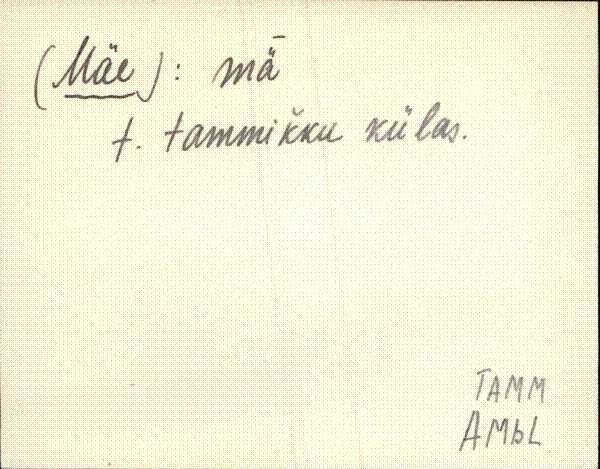 (Mäe): mǟ
t. tammikku külas.
TAMM
AMbL